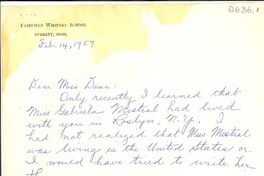 D636.1
FAIRFIELD WHITNEY SCHOOL
EVERETT, MASS.
Feb. 14, 1957
Dear Miss Dana:
Only recently I learned that
Miss Gabriela Mistral had lived
with you in Roslyn, N.Y. I
had not realized that Miss Mistral
was living in the United States or
I would have tried to write her